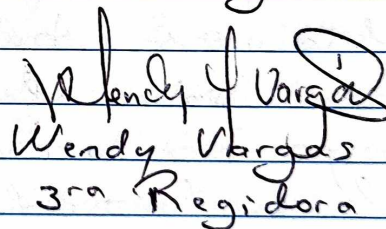 Wendy Y Vargas
Wendy Vargas
3ra Regidora